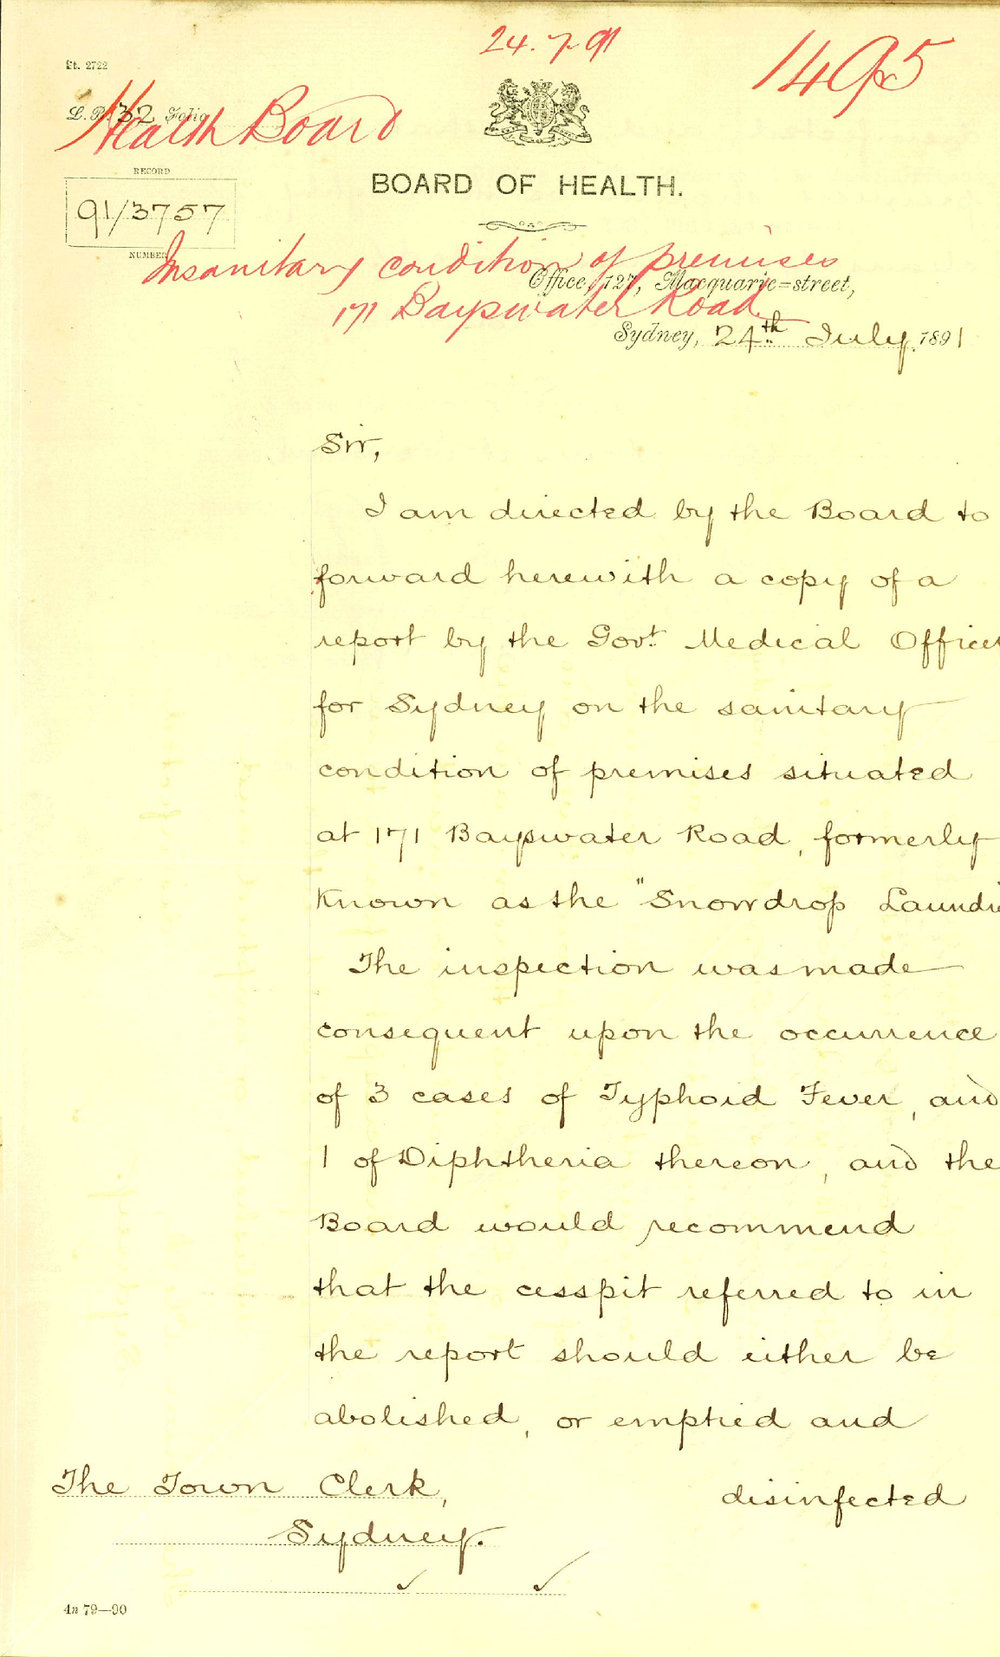 24.7.91
1495
St. 2722
L.B. 132 Folio
Health Board
RECORD
91/3757
NUMBER
BOARD OF HEALTH.
Insanitary condition of premises
171 Bayswater Road
Office, 127, Macquarie=street,
Sydney, 24th July 1891
Sir,
I am directed by the Board to
forward herewith a copy of a
report by the Govt. Medical Officer
for Sydney on the sanitary
condition of premises situated
at 171 Bayswater Road, formerly
known as the "Snowdrop Laundr
The inspection was made
consequent upon the occurrence
of 3 cases of Typhoid Fever, and
1 of Diphtheria thereon, and the
Board would recommend
that the cesspit referred to in
the report should either be
abolished, or emptied and
disinfected
The Town Clerk,
Sydney.
4a 79—90